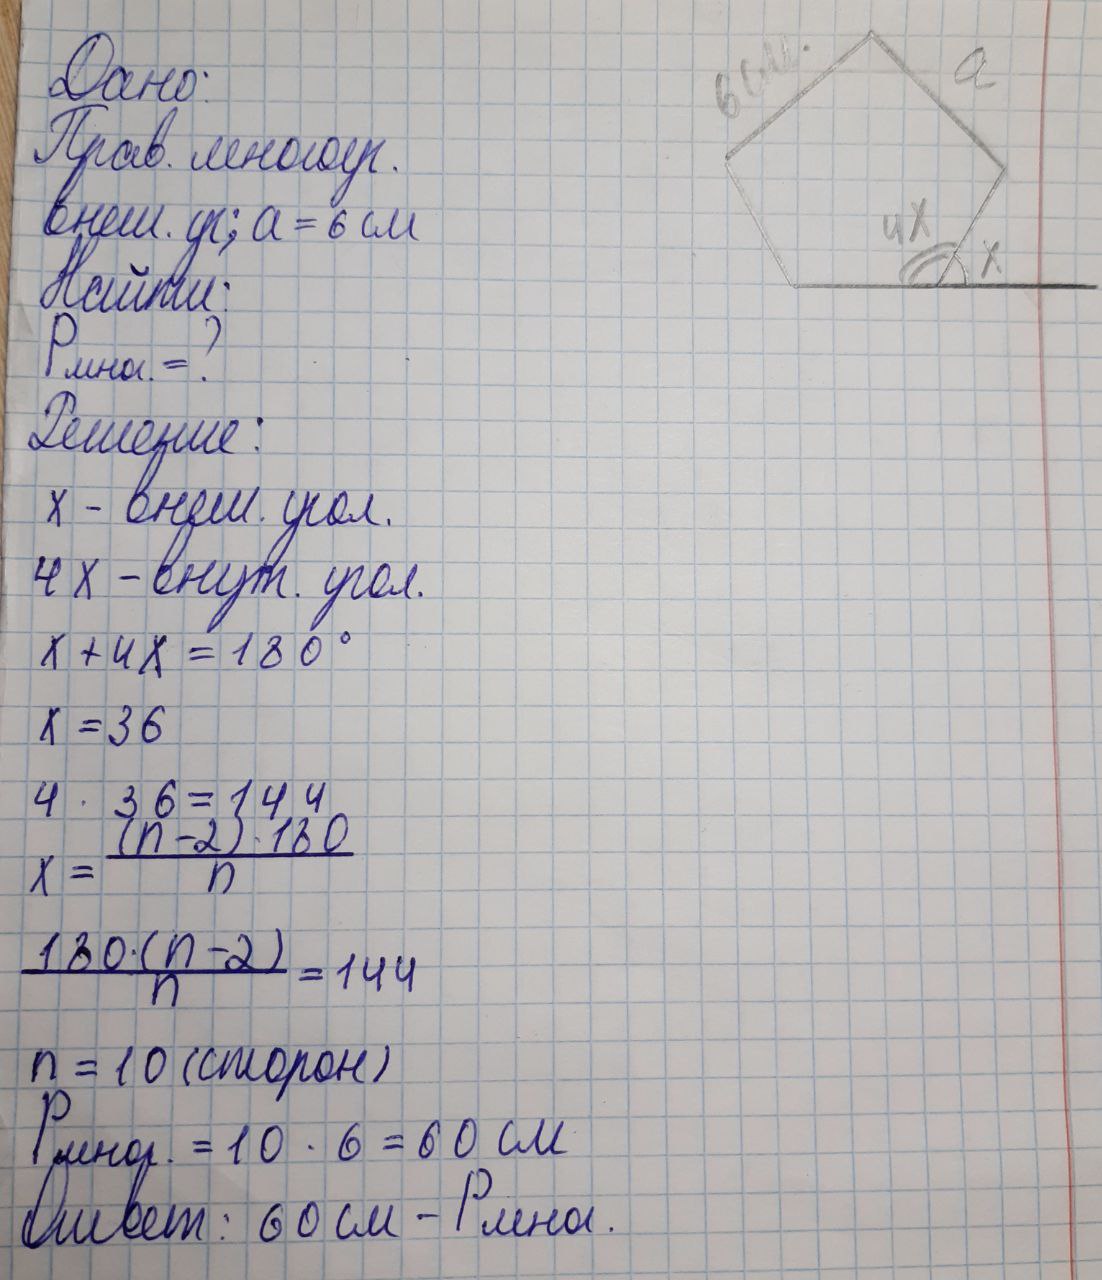 Дано:
Прав. многоуг.
внеш. уг; a = 6 см
Найти:
Pмног. = ?
Решение:
x - внеш. угол.
4x - внут. угол.
x + 4x = 180°
x = 36
4 · 36 = 144
x = (n-2)·180 / n
180·(n-2) / n = 144
n = 10 (сторон)
Pмног. = 10 · 6 = 60 см
Ответ: 60 см - Pмног.
6 см.
a
4x
x